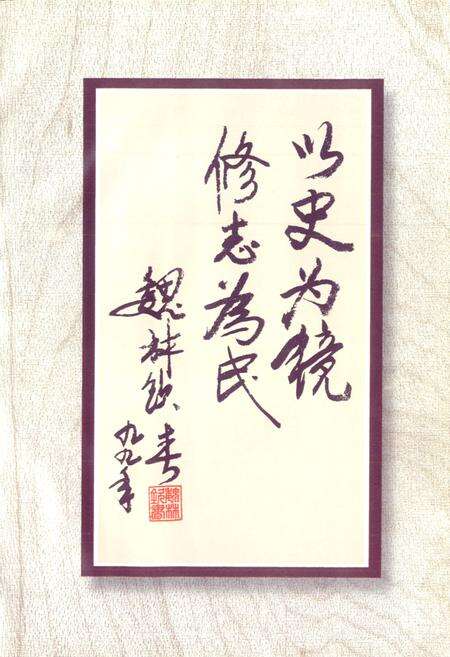 以史为镜
修志為民
魏林
九九年